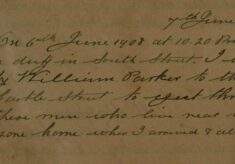 7th June
On 6th June 1908 at 10.20 P
duty in South Street, I
William Parker to the
Castle Street to eject thr
these men who live near
gone home when I arrived & all